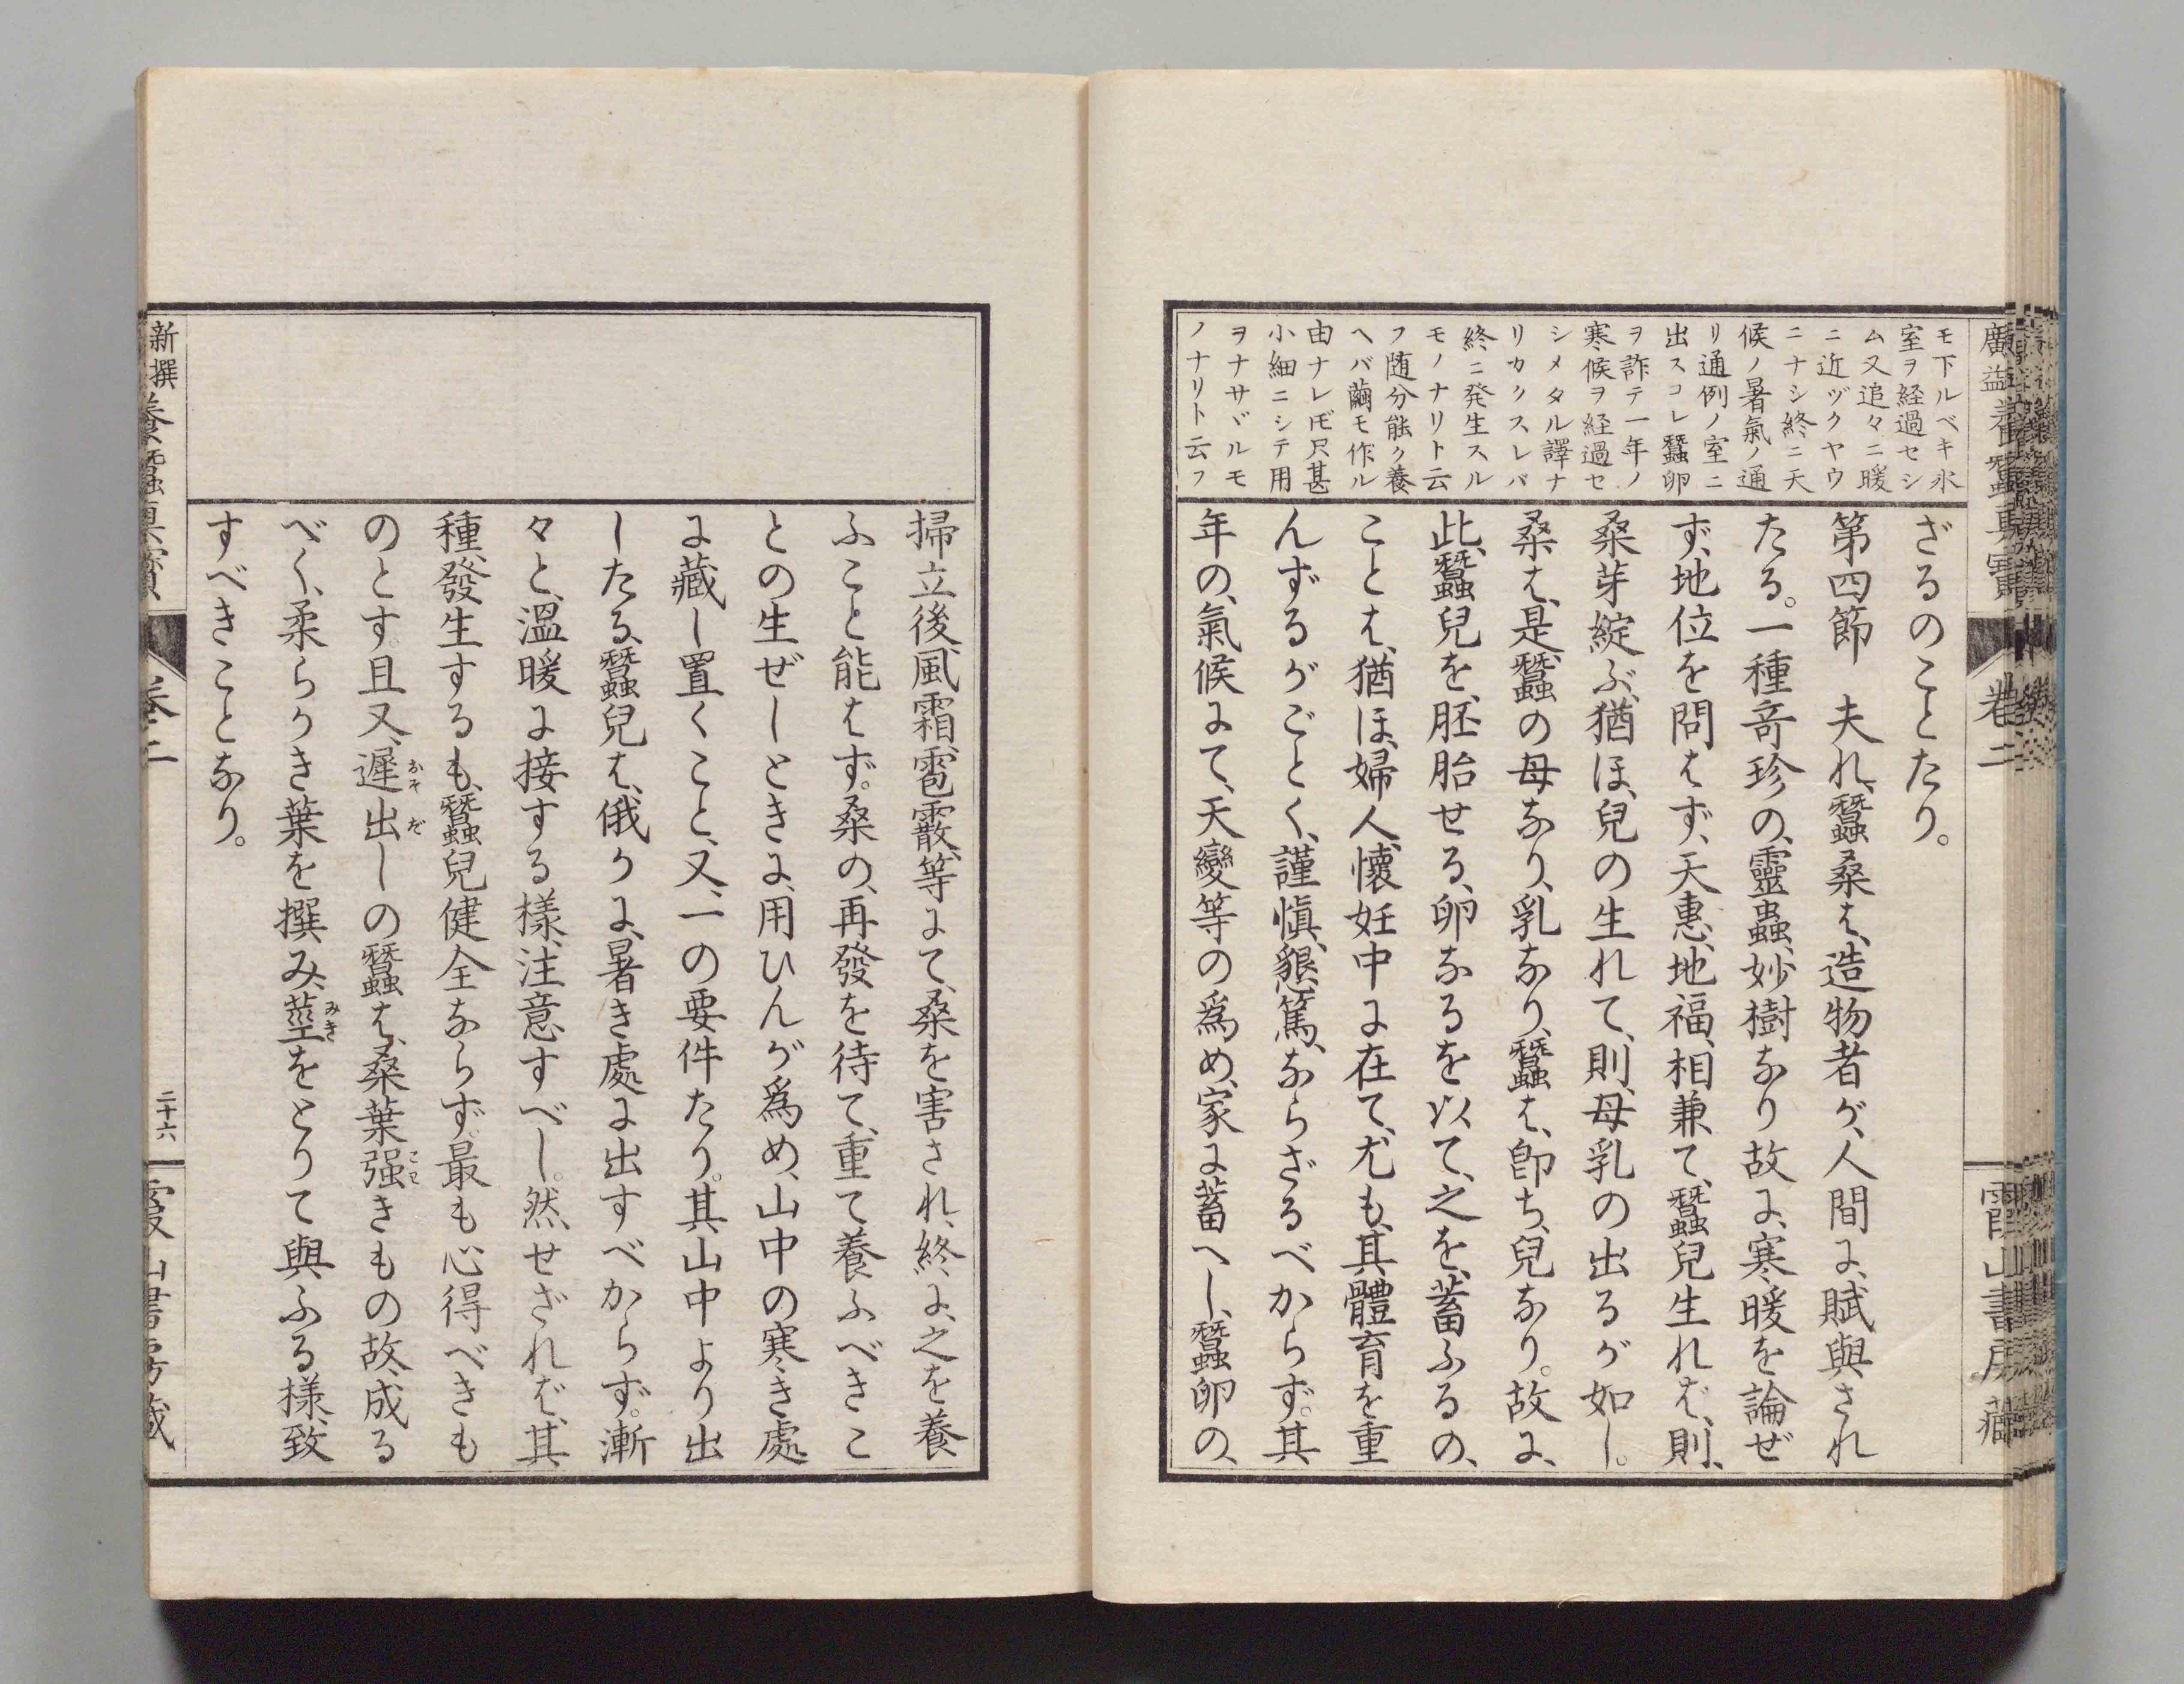 廣益養蠶真寶
卷二
霞山書房藏
モ下ルベキ氷
室ヲ経過セシ
ム又追々ニ暖
ニ近ヅクヤウ
ニナシ終ニ天
候ノ暑氣ノ通
リ通例ノ室ニ
出スコレ蠶卵
ヲ詐テ一年ノ
寒候ヲ経過セ
シメタル譯ナ
リカクスレバ
終ニ発生スル
モノナリト云
フ随分能ク養
ヘバ繭モ作ル
由ナレ𪜈尺甚
小細ニシテ用
ヲナサヾルモ
ノナリト云フ
ざるのことたり。
第四節　夫れ、蠶桑は、造物者が、人間に、賦與され
たる。一種竒珍の、靈蟲、妙樹なり故に、寒暖を論ぜ
ず、地位を問はず、天惠、地福、相兼て、蠶兒生れば、則、
桑芽綻ぶ、猶ほ、兒の生れて、則、母乳の出るが如し。
桑は、是、蠶の母なり、乳なり、蠶は、卽ち、兒なり。故に、
此、蠶兒を、胚胎せる、卵なるを以て、之を、蓄ふるの、
ことは、猶ほ、婦人、懷妊中に在て、尤も、其體育を重
んずるがごとく、謹愼、懇篤、ならざるべからず。其
年の、氣候にて、天變等の爲め、家に蓄へし、蠶卵の、
掃立後、風、霜、雹、霰、等にて、桑を害され、終に、之を養
ふこと能はず。桑の、再發を待て、重て養ふべきこ
との生ぜしときに、用ひんが爲め、山中の寒き處
に藏し置くこと、又、一の要件たり。其山中より出
したる、蠶兒は、俄かに、暑き處に出すべからず。漸
々と、溫暖に接する樣、注意すべし。然、せざれば、其
種、發生するも、蠶兒健全ならず、最も心得べきも
のとす。且又、遲出しの蠶は、桑葉强きもの故、成る
べく、柔らかき葉を撰み、莖をとりて與ふる樣、致
すべきことなり。
おそ　だ
こわ
みき
新撰養蠶真寳
卷二
二十六
霞山書房藏